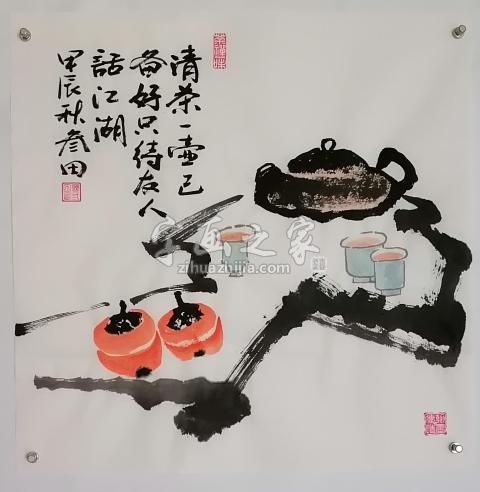 清茶一壶已
备好只待友人
話江湖
甲辰秋彦田
字画之家
zihuazhijia.com